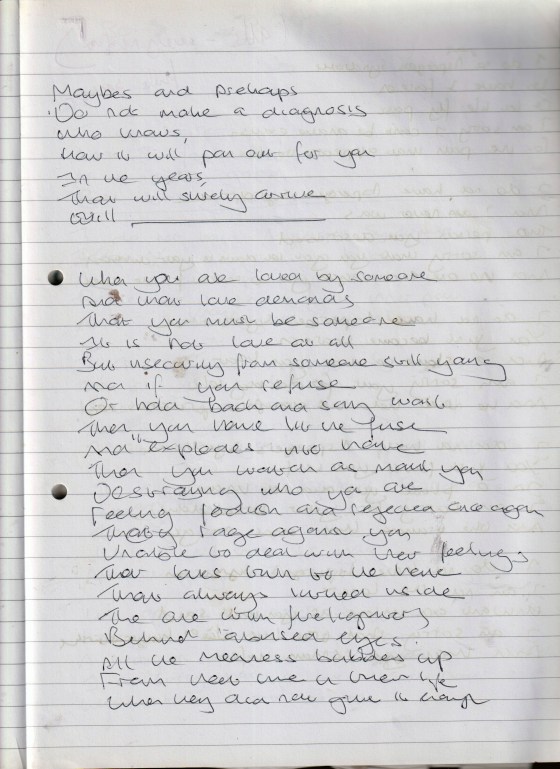 Maybes and Prehaps
Do not make a diagnosis
Who knows,
How it will pan out for you
In the years,
That will surely arrive
Still
When you are loved by someone
And that love demands
That you must be someone
It is not love at all
But insecurity from someone still young
And if you refuse
Or hold back and say wait
Then you have lit the fuse
And explodes into hate
Then you watch as mark you
Destroying who you are
Feeling foolish and rejected once again
They rage against you
Unable to deal with their feelings
That looks back to the
That always turned inside
The one with
Behind eyes.
All the madness bubbles up
From their time in their life
When they did not give it enough